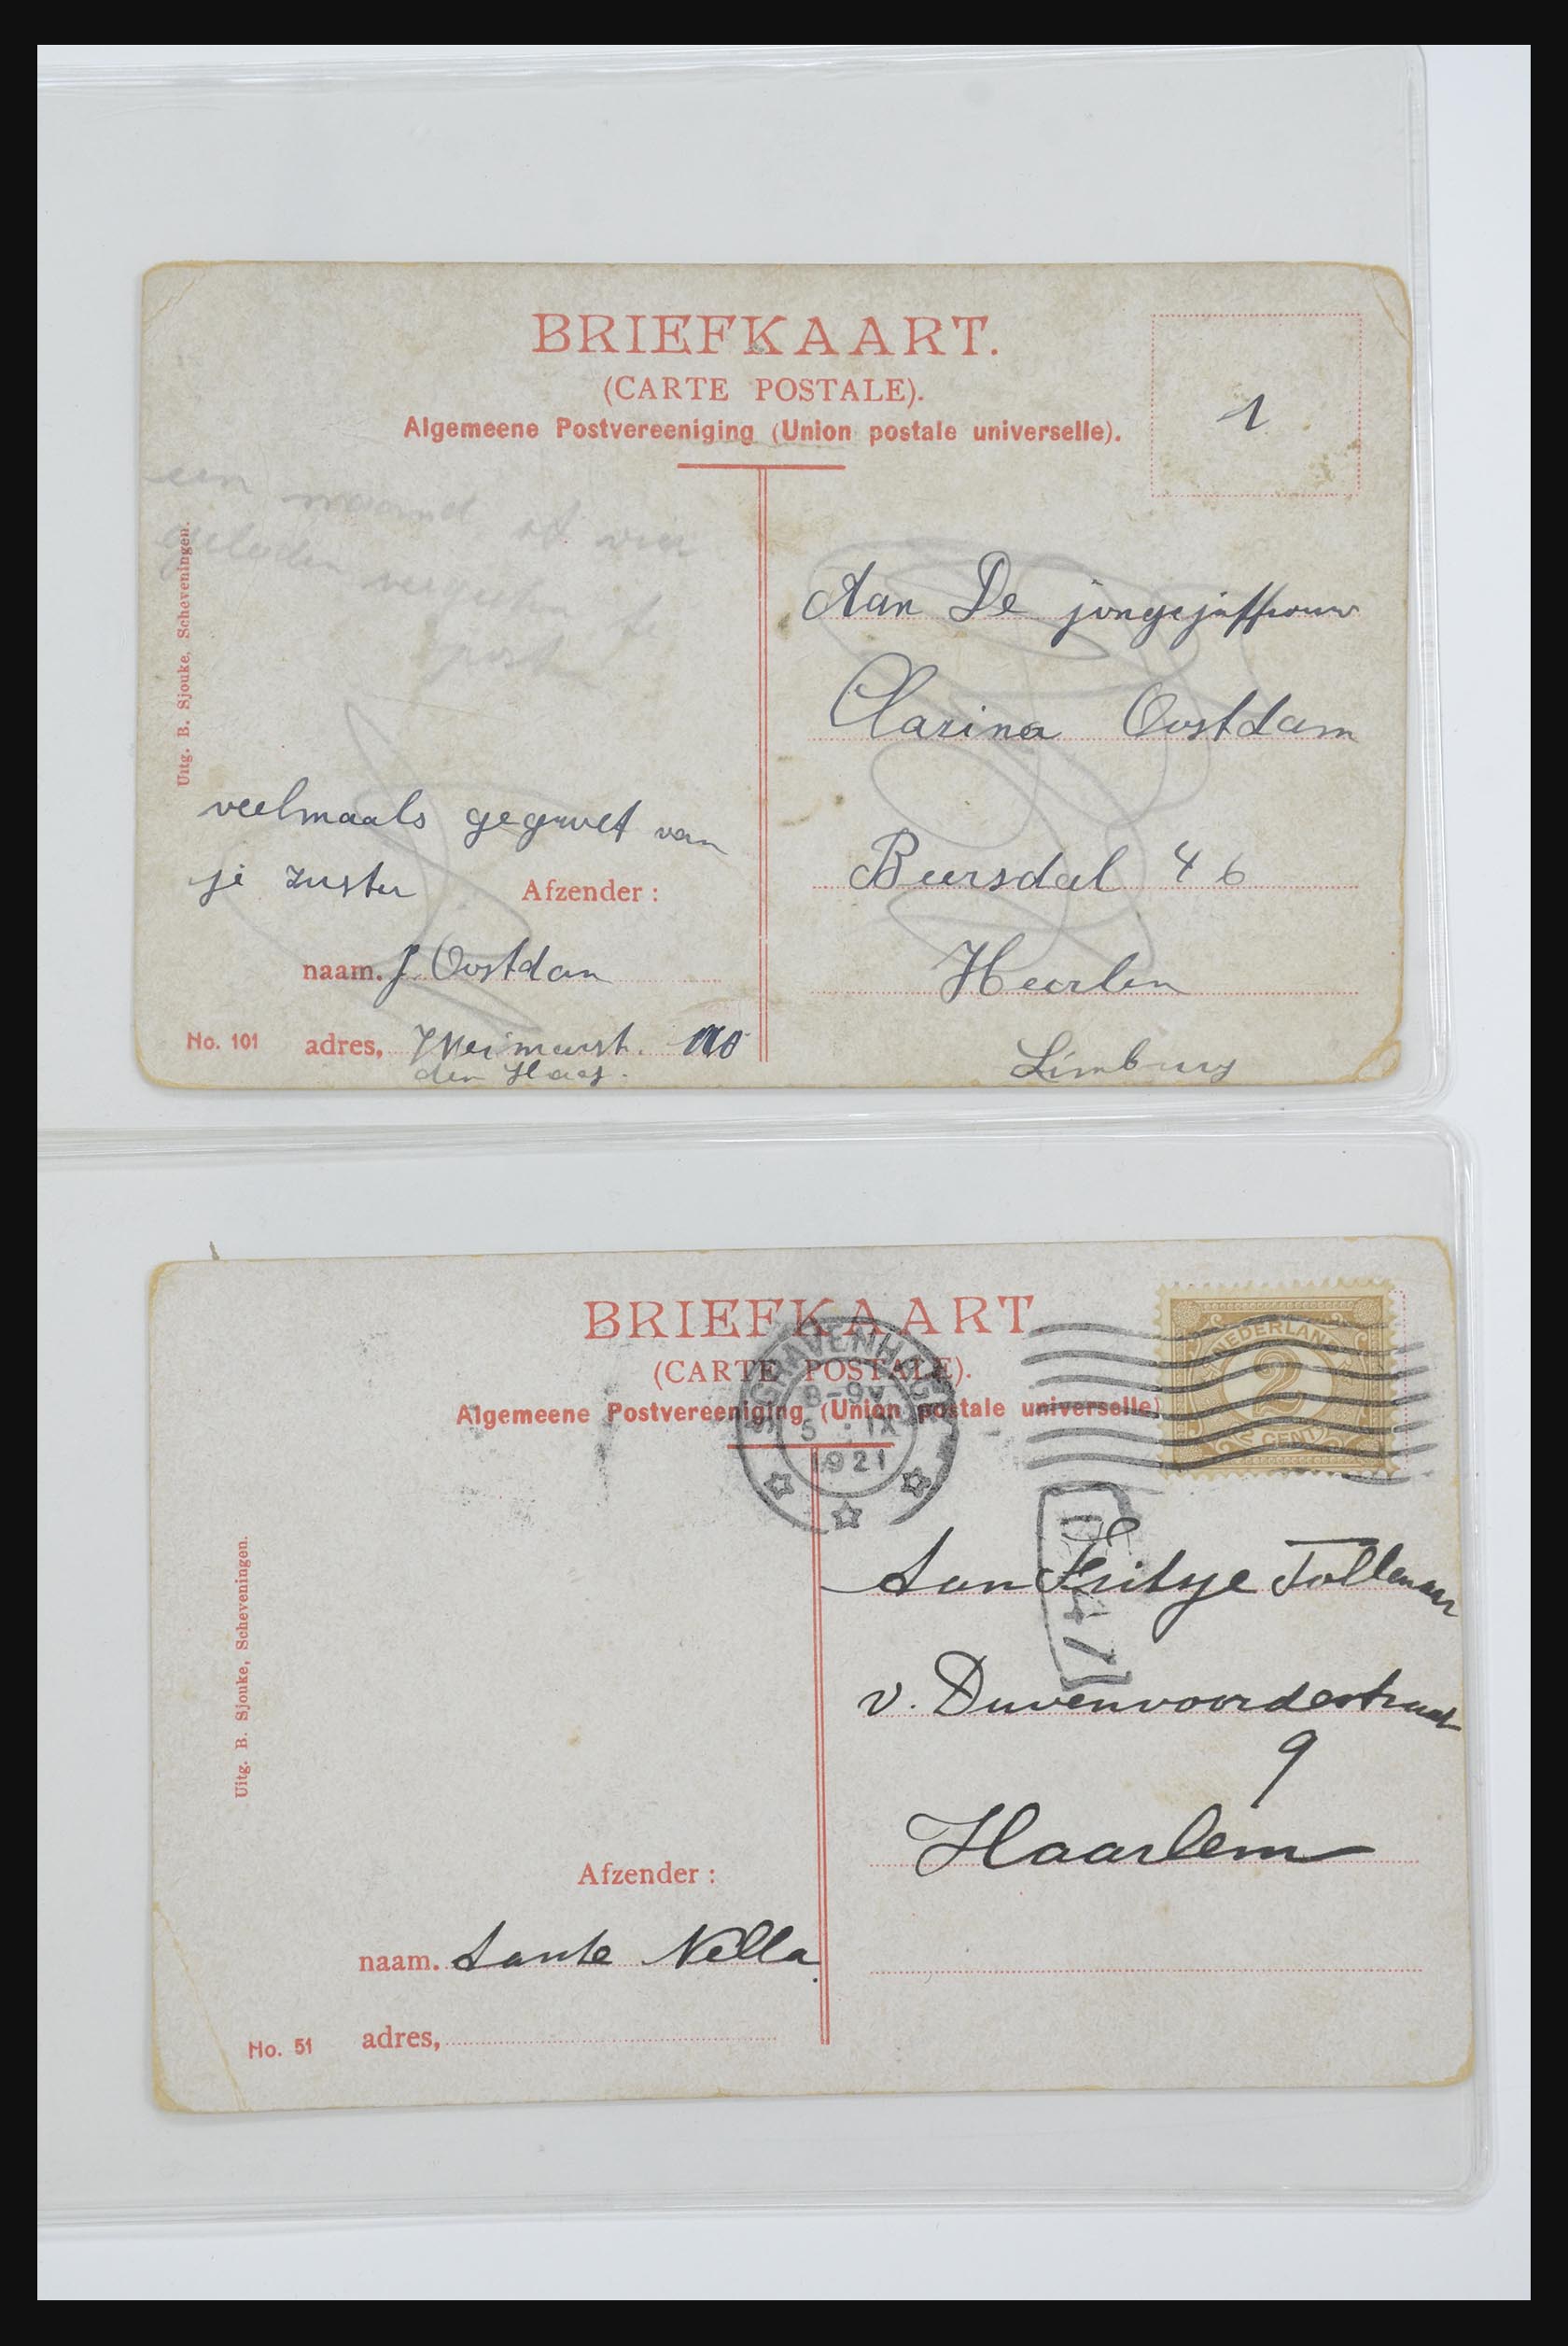 BRIEFKAART.
(CARTE POSTALE).
Algemeene Postvereeniging (Union postale universelle).
1
een maand
geleden vergeten te
post
Uitg. B. Sjouke, Scheveningen.
Aan De jongejuffrouw
Clarina Oostdam
Beersdal 46
Heerlen
Limburg
veelmaals gegroet van
je zuster
Afzender :
naam. J. Oostdam
No. 101 adres, Weimarst.
den Haag.
BRIEFKAART.
(CARTE POSTALE).
Algemeene Postvereeniging (Union postale universelle)
'S GRAVENHAGE
8-9V
5 IX
1921
NEDERLAND
2
2 CENT
Uitg. B. Sjouke, Scheveningen.
Aan Fritsje Tollenaar
v. Duvenvoordestraat
9
Haarlem
Afzender :
naam. Tante Nella
No. 51 adres,